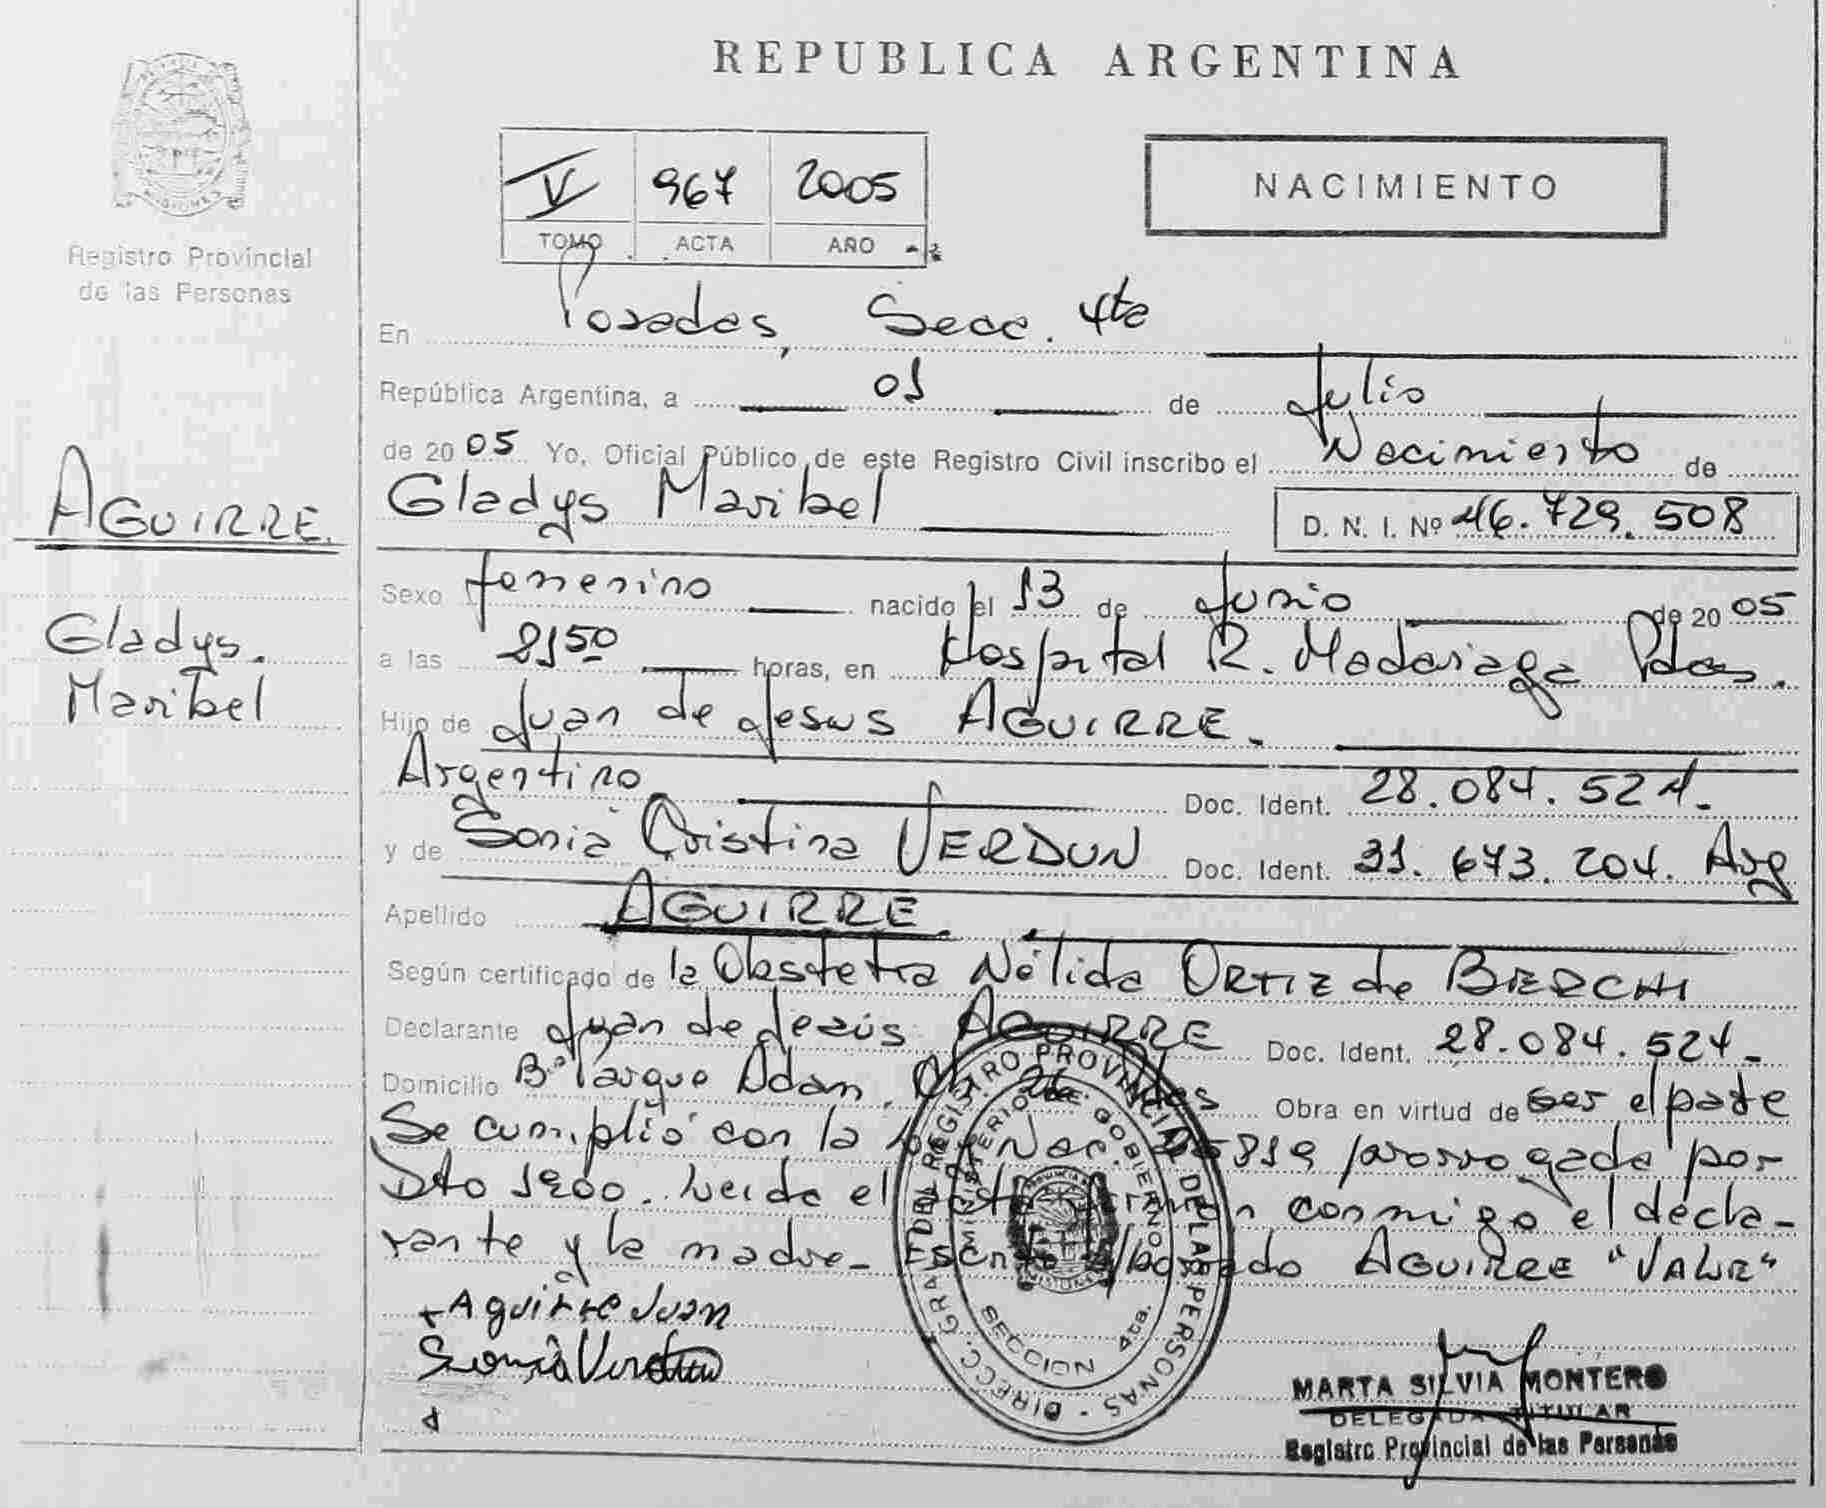 REPUBLICA ARGENTINA
Registro Provincial
de las Personas
V 967 2005
TOMO ACTA AÑO
NACIMIENTO
En Posadas, Secc. 4ta
República Argentina, a 01 de Julio
de 2005 Yo, Oficial Público de este Registro Civil inscribo el Nacimiento de
Gladys Maribel D. N. I. Nº 46.729.508
AGUIRRE.
Gladys.
Maribel
Sexo femenino nacido el 13 de Junio de 2005
a las 2150 horas, en Hospital R. Madariaga Pdas.
Hijo de Juan de Jesus AGUIRRE.
Argentino Doc. Ident. 28.084.524.
y de Sonia Cristina VERDUN Doc. Ident. 31.673.204. Arg
Apellido AGUIRRE.
Según certificado de la Obstetra Nélida ORTIZ de
Declarante Juan de Jesús AGUIRRE Doc. Ident. 28.084.524.
Domicilio Bº Parque Adam. Obra en virtud de ser el padre
Se cumplió con la Ley Nac. 25819 prorrogada por
Dto 1900. Leida el acta firman conmigo el decla-
rante y la madre- Escrito s/borrado AGUIRRE "VALE"
Aguirre Juan
Sonia Verdun
DIRECC. GRAL. DEL REGISTRO PROVINCIAL DE LAS PERSONAS
MINISTERIO DE GOBIERNO
MISIONES
SECCION 4ta.
MARTA SILVIA MONTERO
DELEGADA TITULAR
Registro Provincial de las Personas